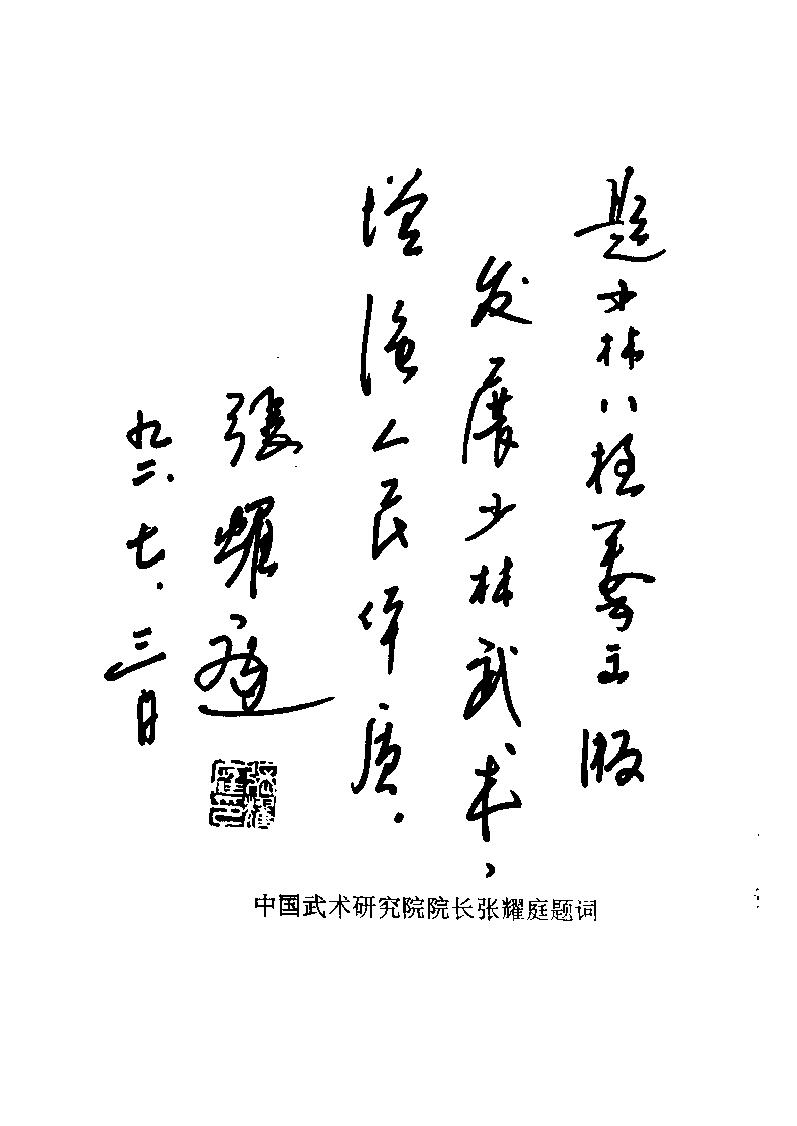 题少林八极拳出版
发展少林武术，
增强人民体质.
张耀庭
九二.七.三日
张耀庭印
中国武术研究院院长张耀庭题词